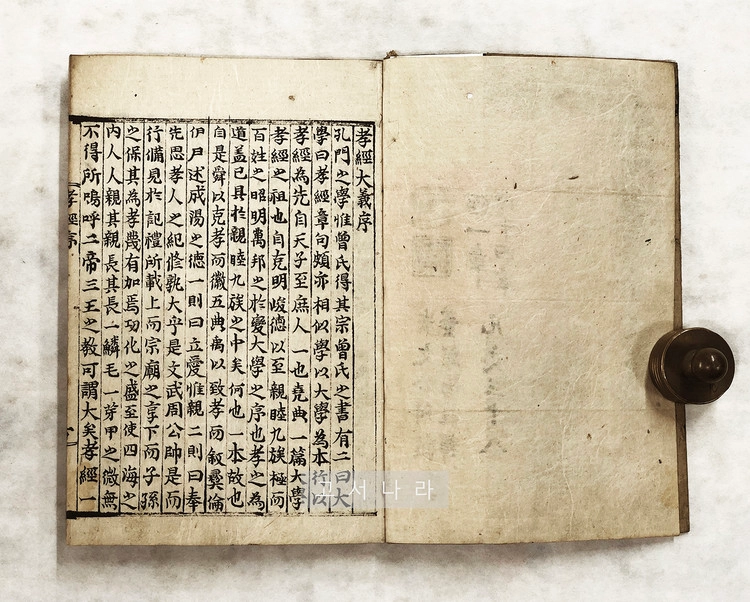 孝經大義序
孔門之學惟曾氏得其宗曾氏之書有二曰大
學曰孝經章句頗亦相似學以大學為本行以
孝經為先自天子至庶人一也堯典一篇大學
孝經之祖也自克明峻德以至親睦九族極而
百姓之昭明萬邦之於變大學之序也孝之為
道盖已具於親睦九族之中矣何也一本故也
自是舜以克孝而徽五典禹以致孝而敘彝倫
伊尹述成湯之德一則曰立愛惟親二則曰奉
先思孝人之紀修孰大乎是文武周公帥是而
行備見於記禮所載上而宗廟之享下而子孫
之保其為孝蔑有加焉功化之盛至使四海之
內人人親其親長其長一鱗毛一芽甲之微無
不得所嗚呼二帝三王之教可謂大矣孝經一
孝經序
고서나라